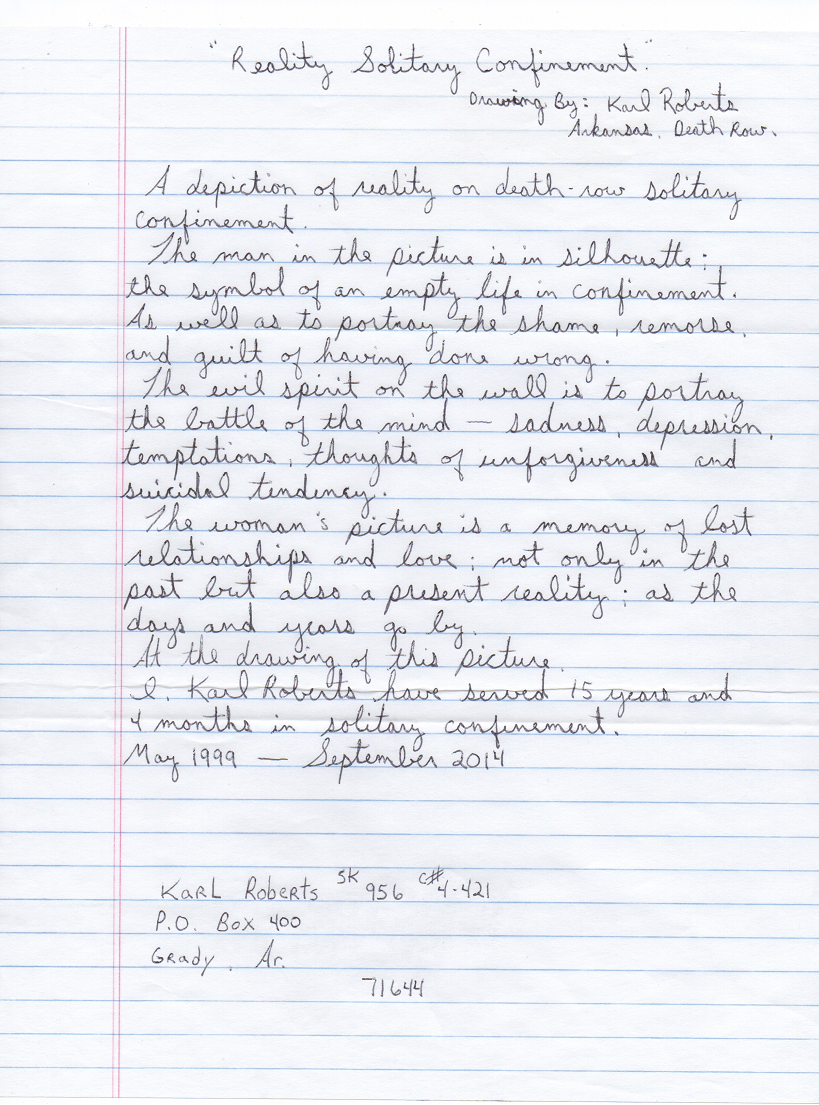 "Reality Solitary Confinement."
Drawing By: Karl Roberts
Arkansas. Death Row.
A depiction of reality on death-row solitary
confinement.
The man in the picture is in silhouette;
the symbol of an empty life in confinement.
As well as to portray the shame, remorse,
and guilt of having done wrong.
The evil spirit on the wall is to portray
the battle of the mind — sadness, depression,
temptations, thoughts of unforgiveness and
suicidal tendency.
The woman's picture is a memory of lost
relationships and love; not only in the
past but also a present reality; as the
days and years go by.
At the drawing of this picture.
I. Karl Roberts have served 15 years and
4 months in solitary confinement.
May 1999 — September 2014
Karl Roberts SK 956 C# 4-421
P.O. Box 400
Grady, Ar.
71644